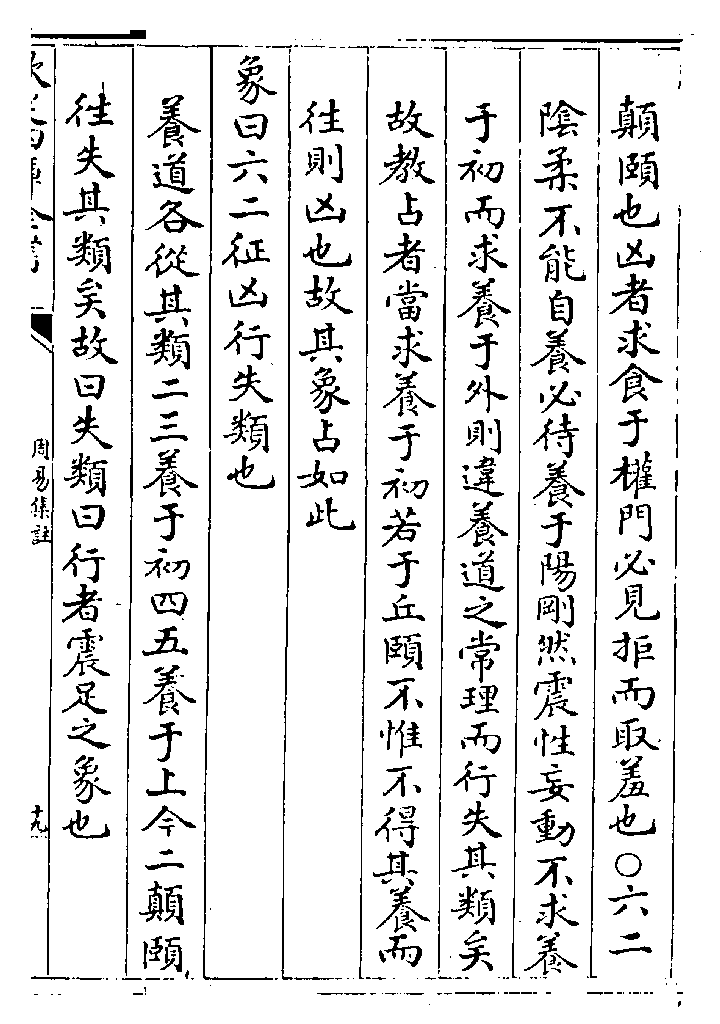 顛頤也凶者求食于權門必見拒而取羞也○六二
陰柔不能自養必待養于陽剛然震性妄動不求養
于初而求養于外則違養道之常理而行失其類矣
故教占者當求養于初若于丘頤不惟不得其養而
往則凶也故其象占如此
象曰六二征凶行失類也
養道各從其類二三養于初四五養于上今二顛頤
往失其類矣故曰失類曰行者震足之象也
欽定四庫全書
周易集註
十九